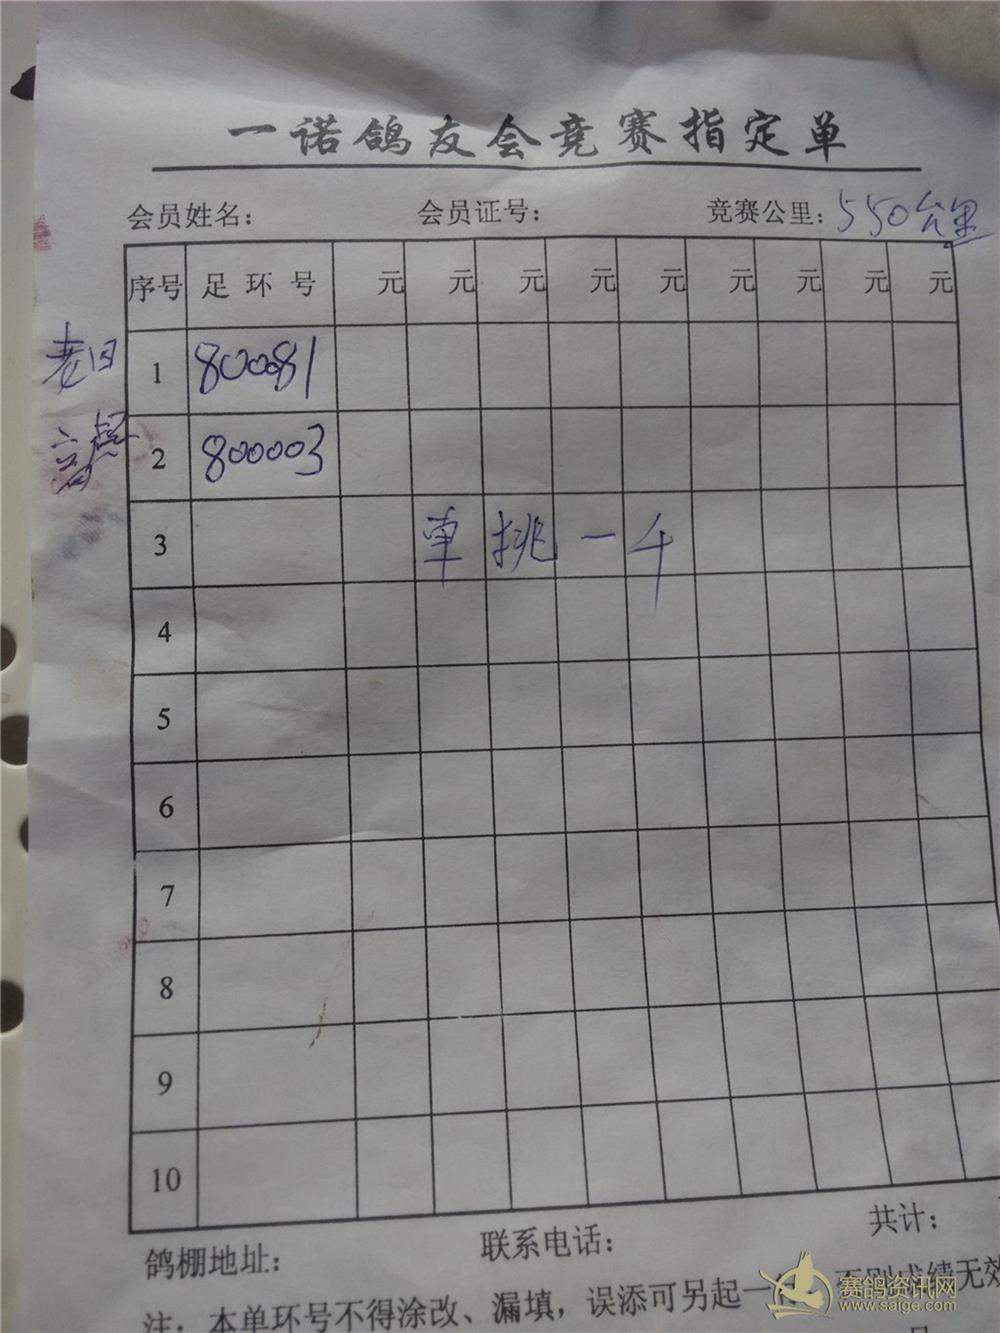 一诺鸽友会竞赛指定单
会员姓名： 会员证号： 竞赛公里：550公里
序号 足环号 元 元 元 元 元 元 元 元 元
1 800081
2 800003
3 单挑一千
4
5
6
7
8
9
10
鸽棚地址： 联系电话： 共计：
注：本单环号不得涂改、漏填，误添可另起一 否则成绩无效
赛鸽资讯网
www.saige.com